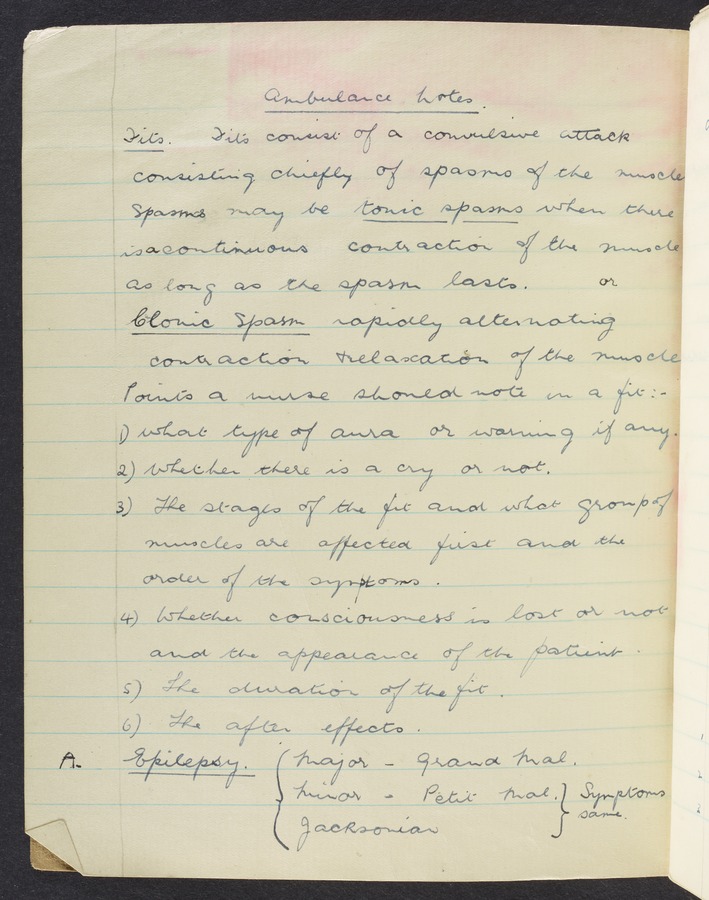 Ambulance Notes.
Fits. Fits consist of a convulsive attack
consisting chiefly of spasms of the muscle
Spasms may be tonic spasms when there
is a continuous contraction of the muscle
as long as the spasm lasts. or
Clonic Spasm rapidly alternating
contraction & relaxation of the muscle
Points a nurse should note in a fit:-
1) what type of aura or warning if any.
2) Whether there is a cry or not.
3) The stages of the fit and what group of
muscles are affected first and the
order of the symptoms.
4) Whether consciousness is lost or not
and the appearance of the patient.
5) The duration of the fit.
6) The after effects.
A. Epilepsy. ( Major - Grand Mal.
Minor - Petit Mal. } Symptoms
same.
Jacksonian